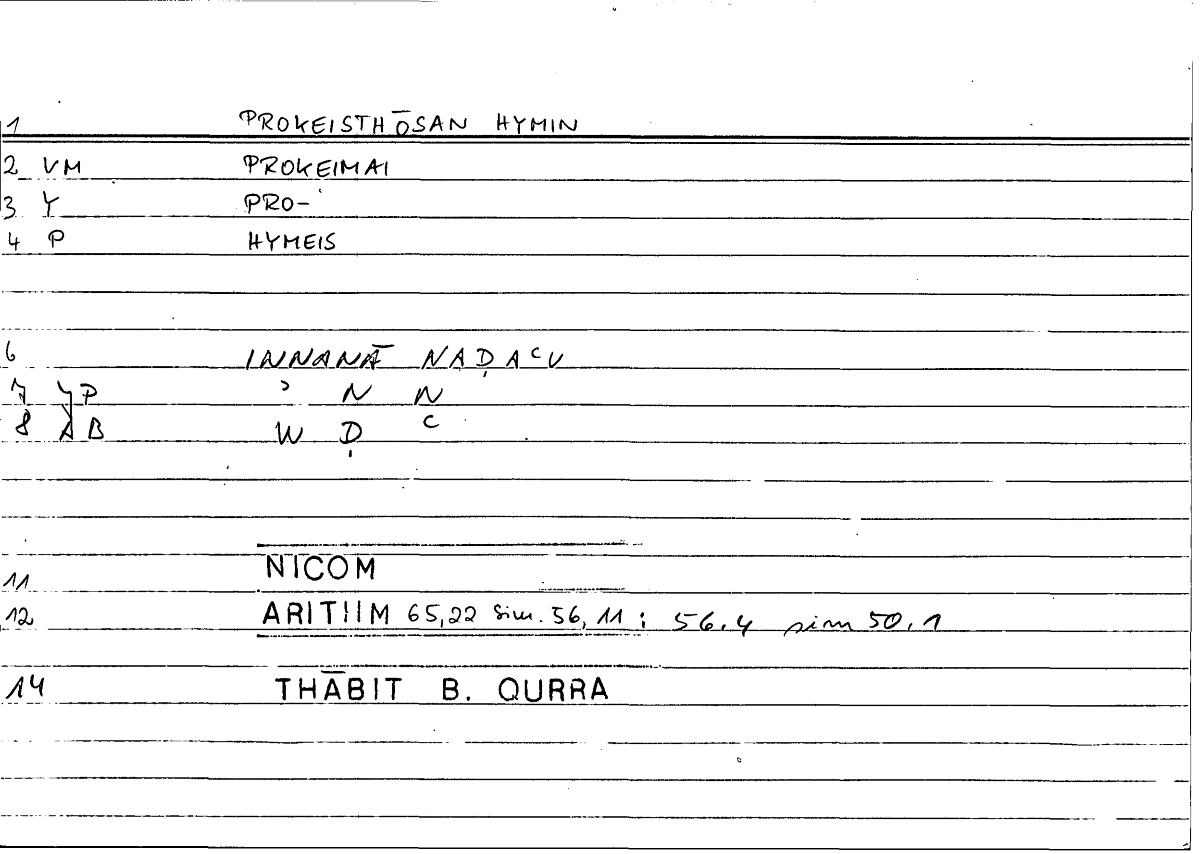 1 PROKEISTHŌSAN HYMIN
2 VM PROKEIMAI
3 Y PRO-
4 P HYMEIS
6 INNANĀ NAḌAᶜU
7 YP ʾ N N
8 AB W Ḍ ᶜ
11 NICOM
12 ARITIIM 65,22 sim. 56,11 ; 56.4 sim 50.1
14 THĀBIT B. QURRA